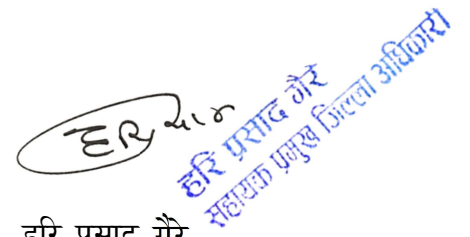 हरि प्रसाद गैरे
सहायक प्रमुख जिल्ला अधिकारी
हरि प्रसाद गैरे